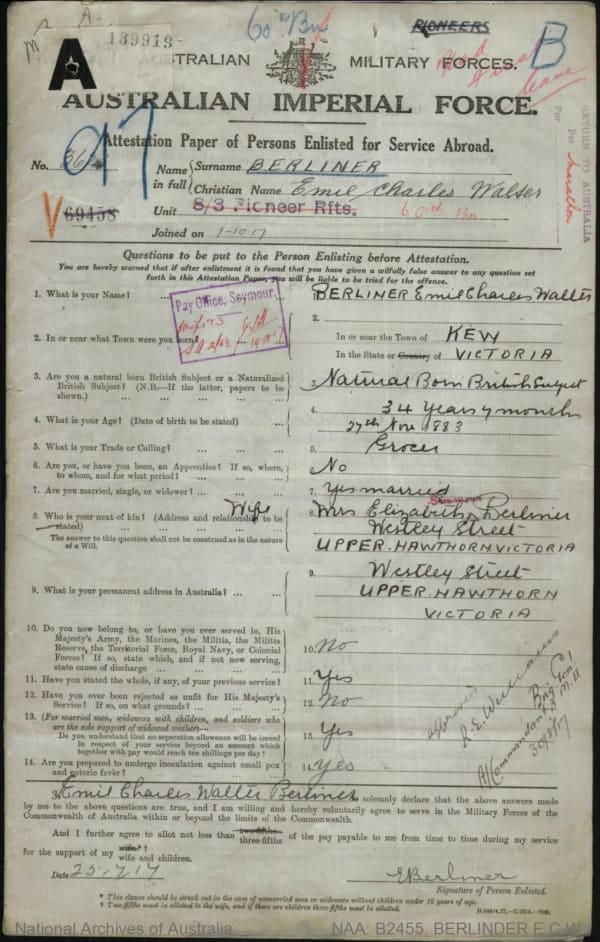 139919
A
60th Bn
PIONEERS
B
AUSTRALIAN MILITARY FORCES.
leave
AUSTRALIAN IMPERIAL FORCE.
Attestation Paper of Persons Enlisted for Service Abroad.
RETURN TO AUSTRALIA
For
Per
No.
Name in full
Surname BERLINER
Christian Name Emil Charles Walter
V 69458
Unit 8/3 Pioneer Rfts. 60th Bn
Joined on 1-10-17
Questions to be put to the Person Enlisting before Attestation.
You are hereby warned that if after enlistment it is found that you have given a wilfully false answer to any question set
forth in this Attestation Paper, you will be liable to be tried for the offence.
1. What is your Name? ... BERLINER Emil Charles Walter
Pay Office, Seymour.
2. In or near what Town were you born?
2. In or near the Town of KEW
In the State or Country of VICTORIA
3. Are you a natural born British Subject or a Naturalized
British Subject? (N.B.—If the latter, papers to be
shown.) ... ... ... ...
3. Natural Born British Subject
4. What is your Age? (Date of birth to be stated) ...
4. 34 Years 7 months
27th Nov 1883
5. What is your Trade or Calling? ... ... ...
5. Grocer
6. Are you, or have you been, an Apprentice? If so, where,
to whom, and for what period? ... ... ...
6. No
7. Are you married, single, or widower? ... ... ...
7. Yes married
8. Who is your next of kin? (Address and relationship to be
stated) ... ... ... ...
Wife
The answer to this question shall not be construed as in the nature
of a Will.
8. Mrs Elizabeth Berliner
Westley Street
UPPER. HAWTHORN VICTORIA
9. What is your permanent address in Australia? ... ...
9. Westley Street
UPPER. HAWTHORN
VICTORIA
10. Do you now belong to, or have you ever served in, His
Majesty's Army, the Marines, the Militia, the Militia
Reserve, the Territorial Force, Royal Navy, or Colonial
Forces? If so, state which, and if not now serving,
state cause of discharge ... ... ...
10. No
11. Have you stated the whole, if any, of your previous service?
11. Yes
12. Have you ever been rejected as unfit for His Majesty's
Service? If so, on what grounds? ... ... ...
12. No
13. (For married men, widowers with children, and soldiers who
are the sole support of widowed mother)—
Do you understand that no separation allowance will be issued
in respect of your service beyond an amount which
together with pay would reach ten shillings per day?
13. Yes
14. Are you prepared to undergo inoculation against small pox
and enteric fever? ... ... ... ...
14. Yes
approved
R. E. Williams
Brig Genl
Commandant 3 M.D
30/8/17
I, Emil Charles Walter Berliner solemnly declare that the above answers made
by me to the above questions are true, and I am willing and hereby voluntarily agree to serve in the Military Forces of the
Commonwealth of Australia within or beyond the limits of the Commonwealth.
And I further agree to allot not less than two-fifths three-fifths of the pay payable to me from time to time during my service
for the support of my wife* † wife and children.
Date 25-7-17
E Berliner
Signature of Person Enlisted.
* This clause should be struck out in the case of unmarried men or widowers without children under 16 years of age.
† Two-fifths must be allotted to the wife, and if there are children three-fifths must be allotted.
National Archives of Australia
NAA: B2455, BERLINDER E C W